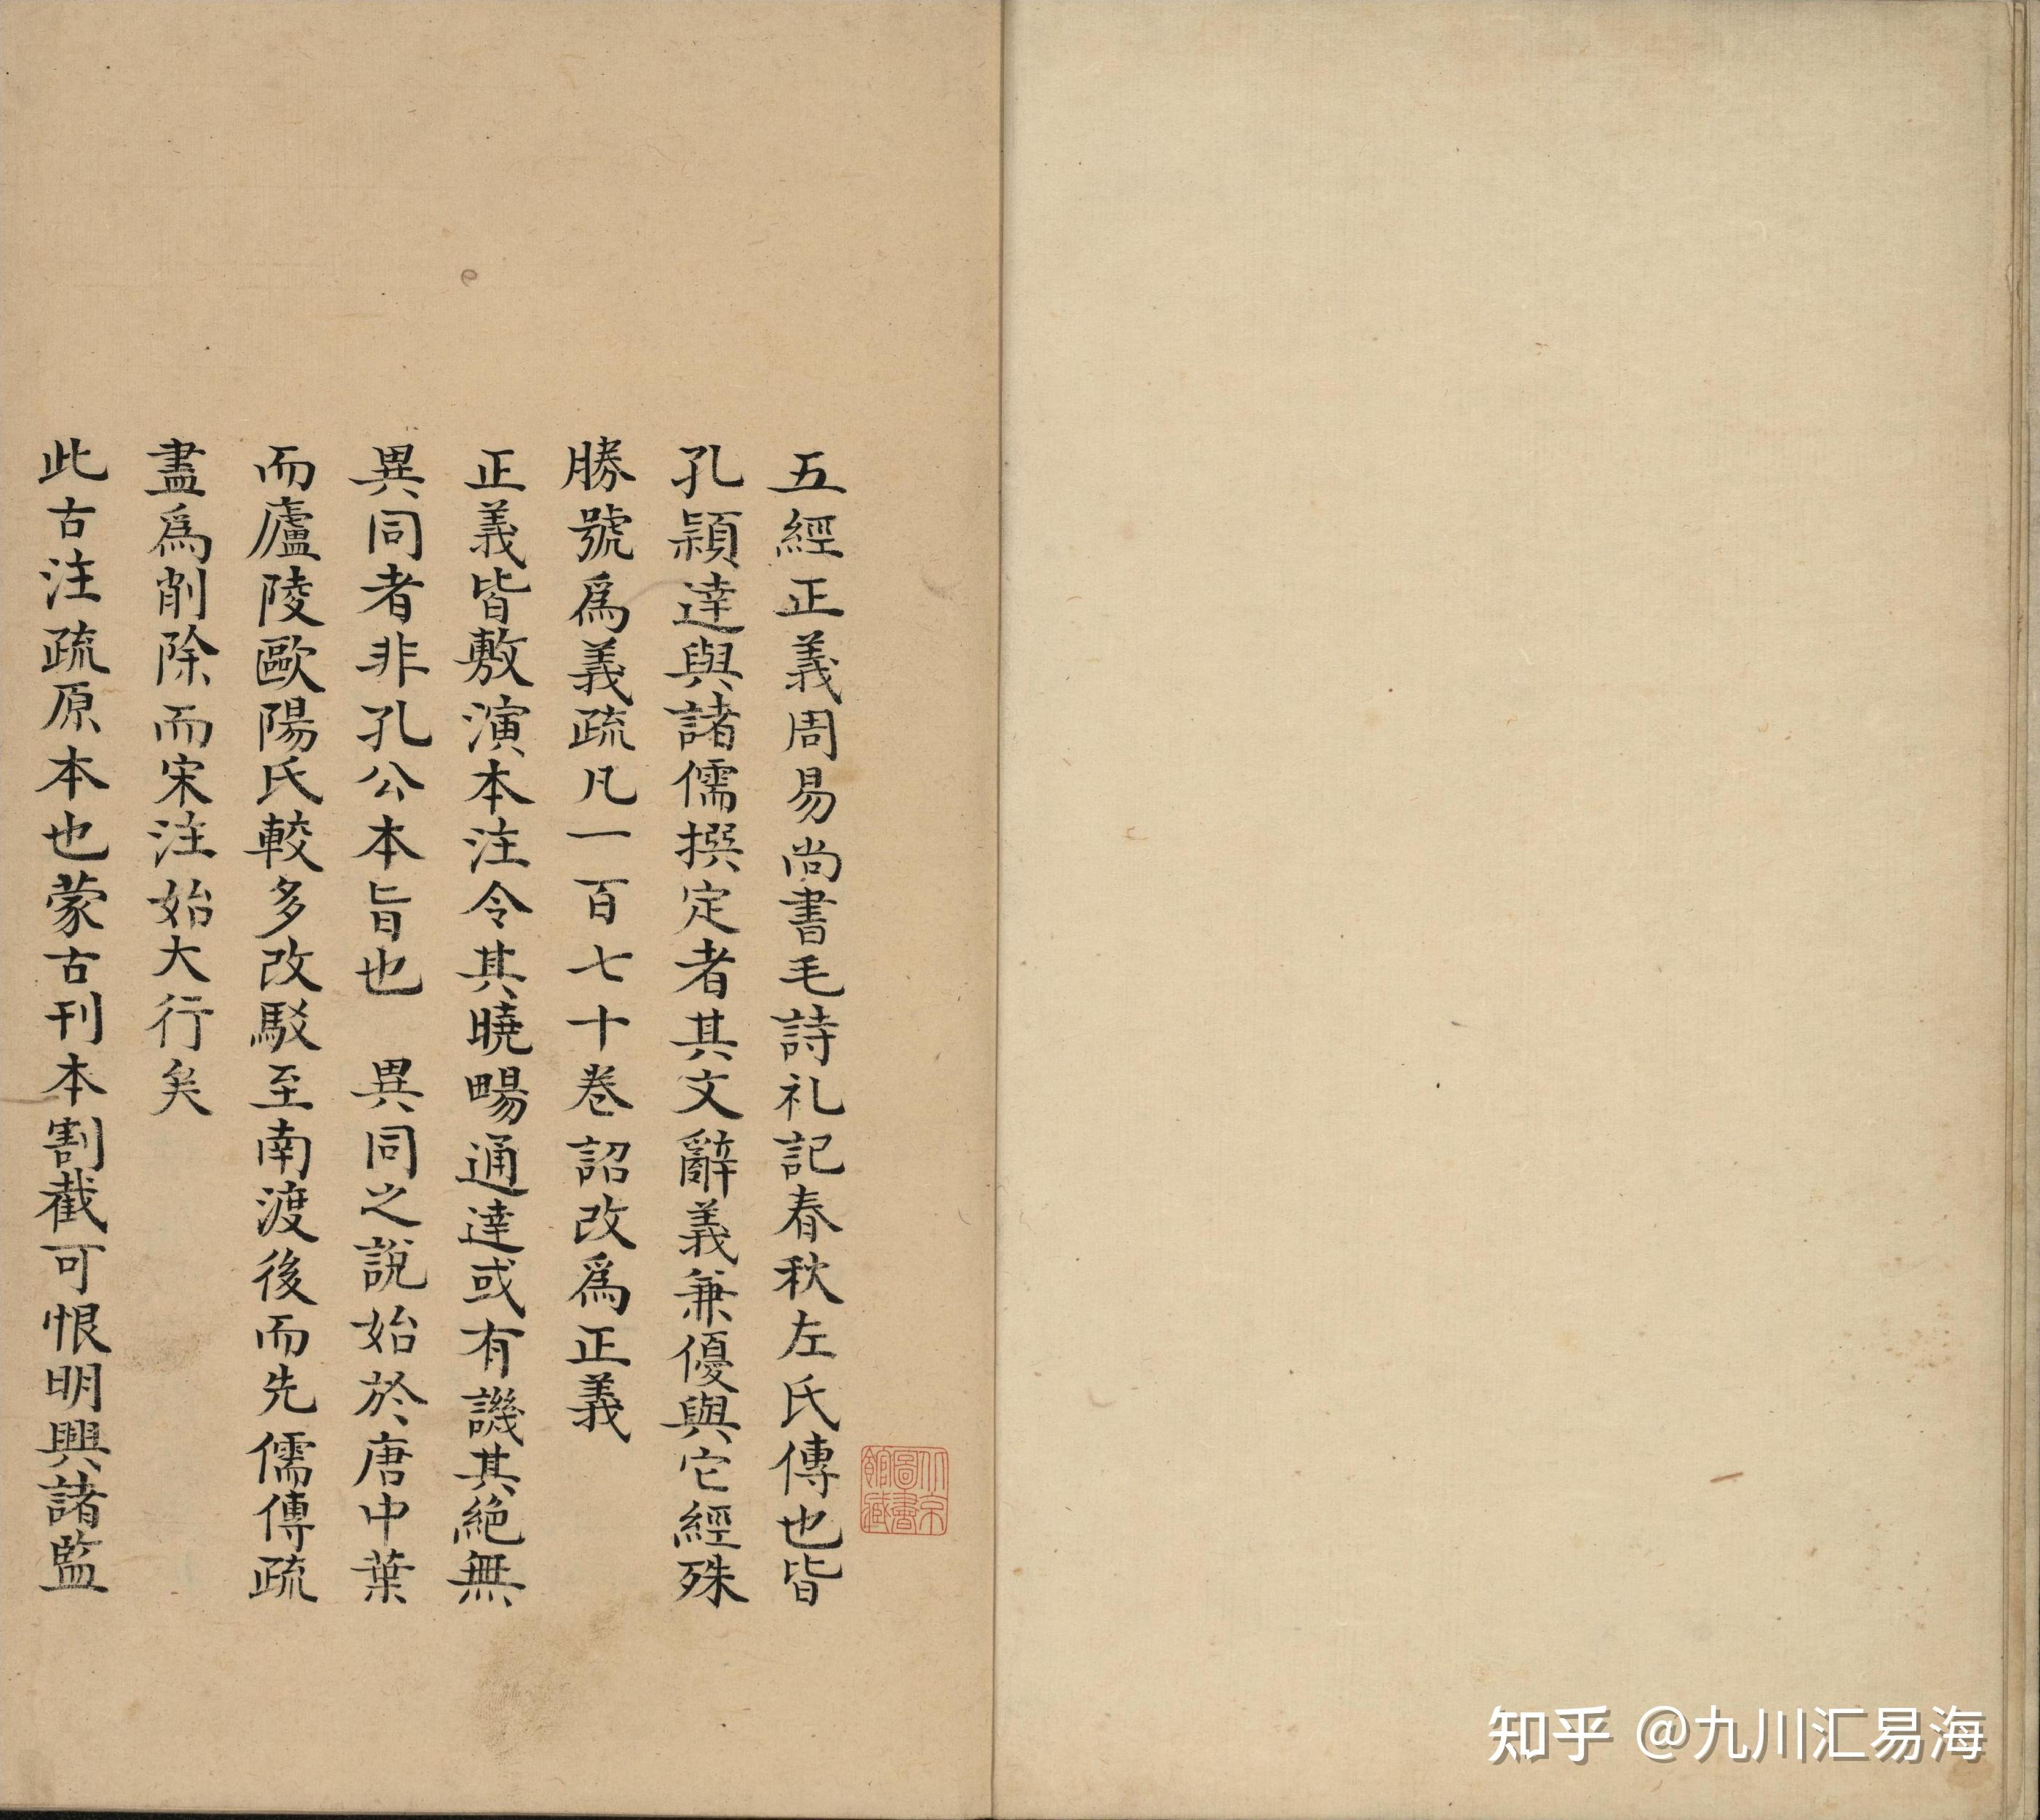 五經正義周易尚書毛詩礼記春秋左氏傳也皆
孔穎達與諸儒撰定者其文辭義兼優與它經殊
勝號爲義疏凡一百七十卷詔改爲正義
正義皆敷演本注令其曉暢通達或有譏其絶無
異同者非孔公本旨也　異同之說始於唐中葉
而廬陵歐陽氏較多改駁至南渡後而先儒傳疏
盡爲削除而宋注始大行矣
此古注疏原本也蒙古刊本割截可恨明興諸監
北京圖書館藏
知乎 @九川汇易海